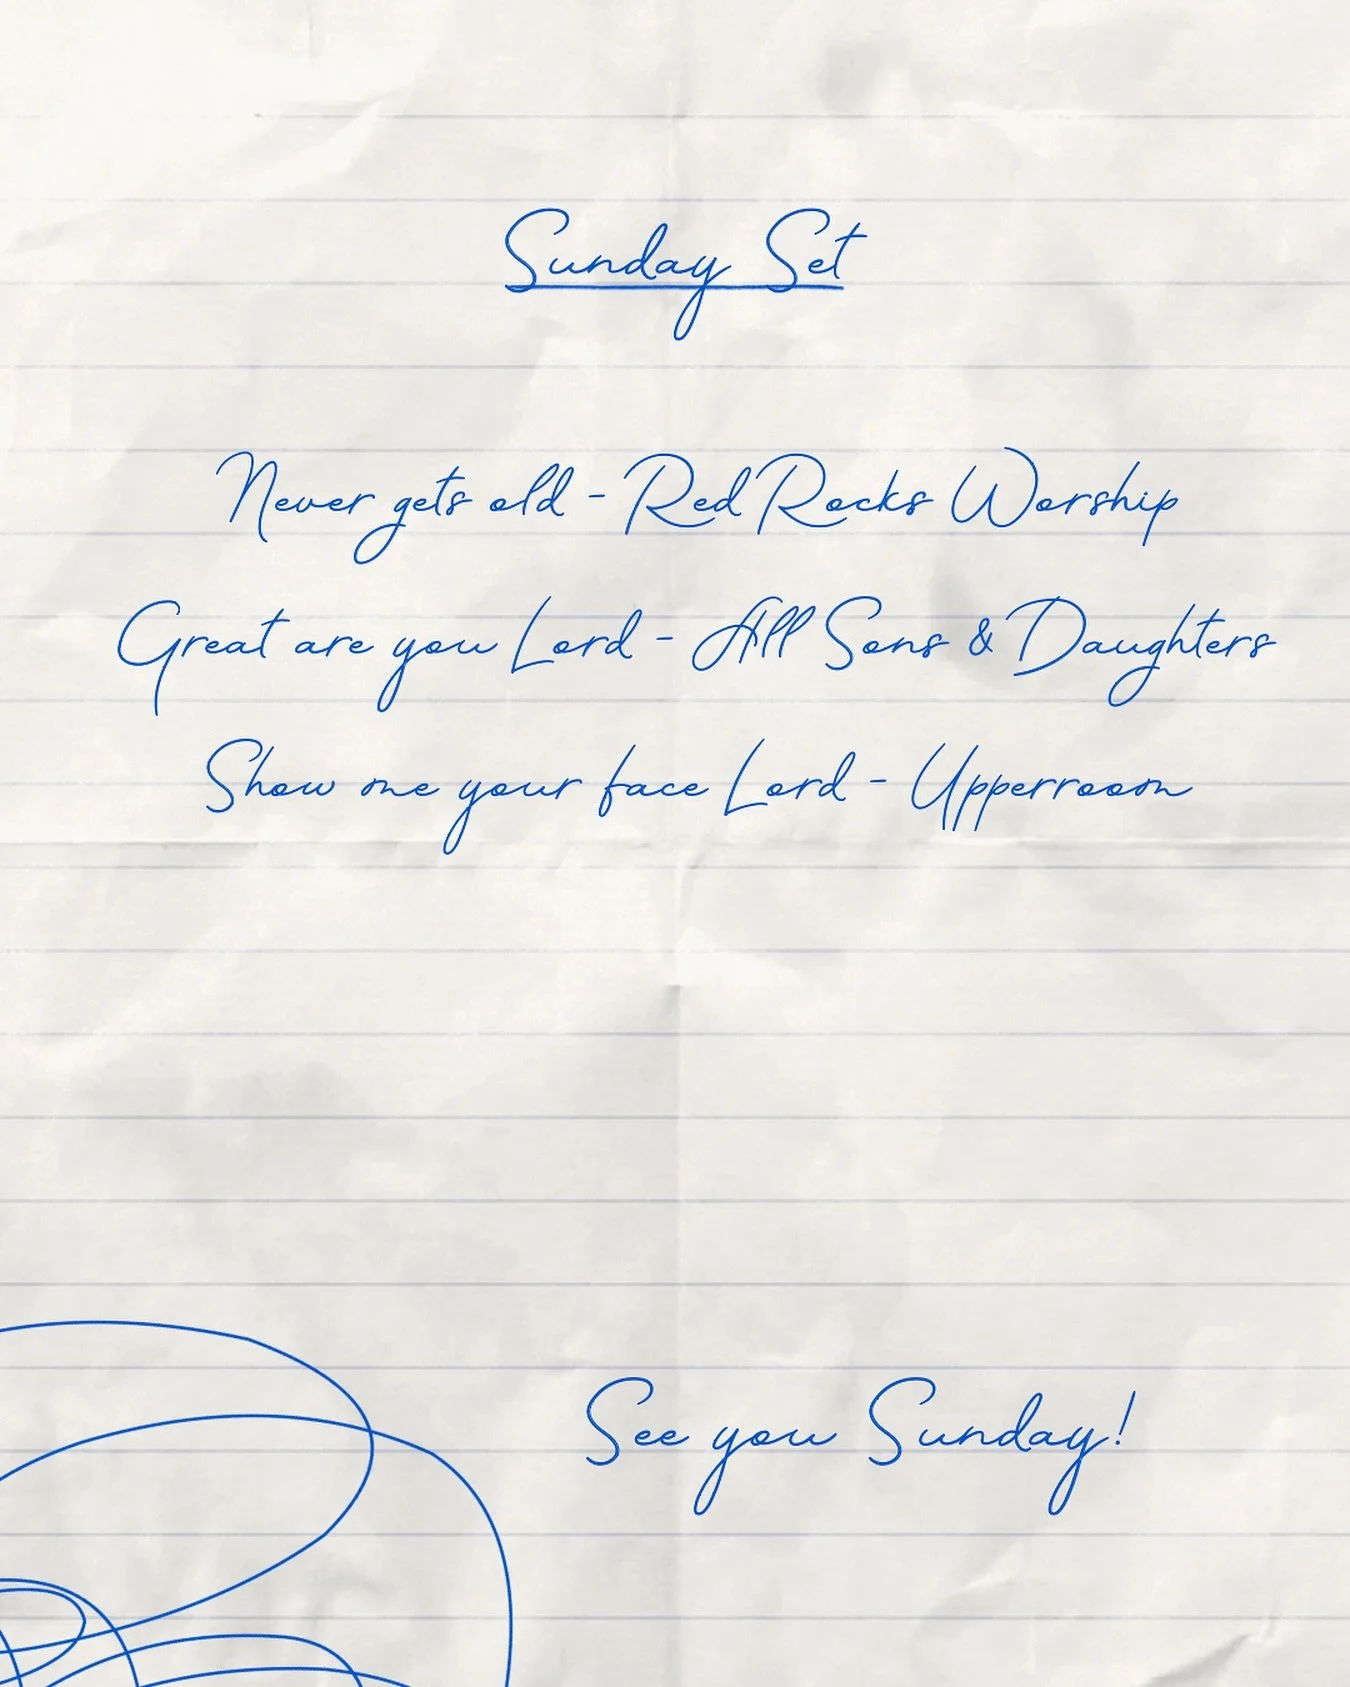 Sunday Set
Never gets old - Red Rocks Worship
Great are you Lord - All Sons & Daughters
Show me your face Lord - Upperroom
See you Sunday!